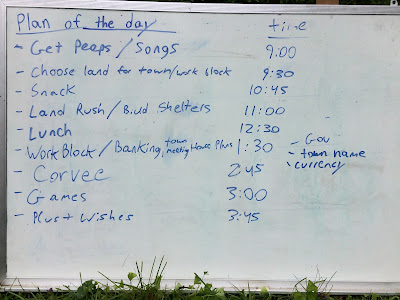 Plan of the day time
- Get Peeps / Songs 9:00
- Choose land for town/work block 9:30
- Snack 10:45
- Land Rush / Build Shelters 11:00
- Lunch 12:30
- Work Block / Banking, town meeting House Plus 1:30
- Gov
- town name
- currency
- Corvee 2:45
- Games 3:00
- Plus + Wishes 3:45